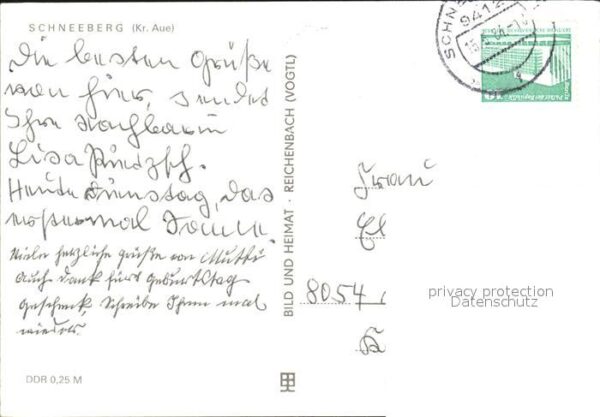 SCHNEEBERG (Kr. Aue)
Die besten Grüße
von hier, sendet
Ihre Nachbarin
Lisa
Heute Dienstag, das
Viele herzliche Grüße von Mutti
Auch Dank fürs Geburtstag
geschenk, Schreibe Ihnen mal
wieder.
DDR 0,25 M
BILD UND HEIMAT · REICHENBACH (VOGTL)
9412
Frau
8054
privacy protection
Datenschutz